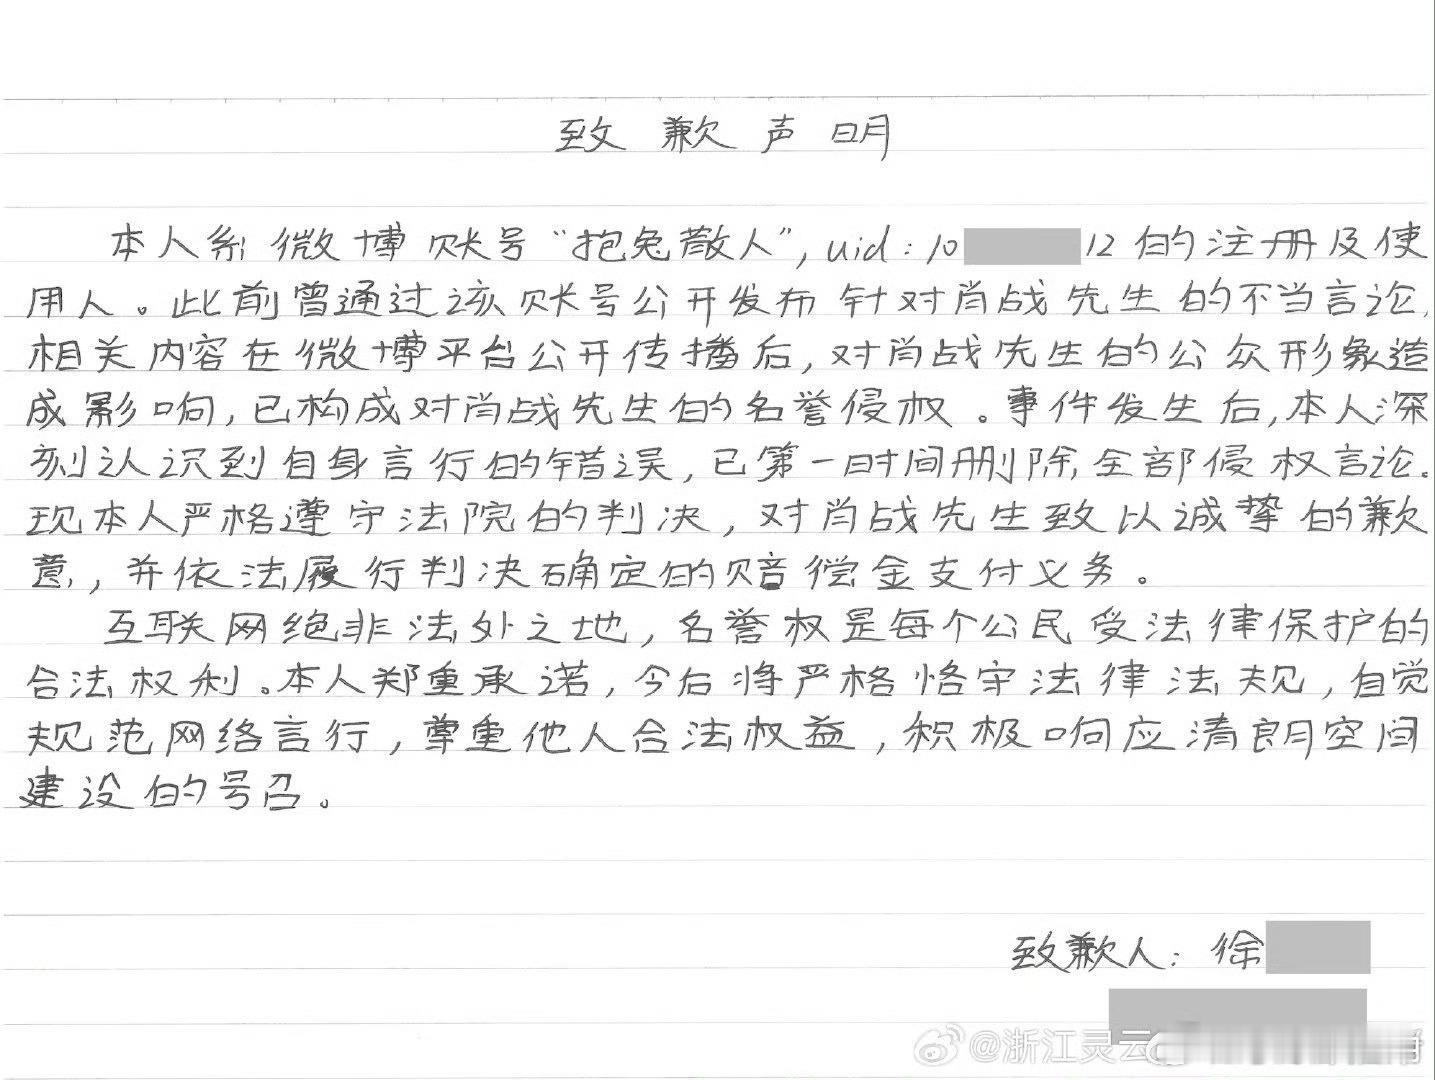 致歉声明
本人系微博账号“抱兔散人”,uid:10 12的注册及使
用人。此前曾通过该账号公开发布针对肖战先生的不当言论,
相关内容在微博平台公开传播后,对肖战先生的公众形象造
成影响,已构成对肖战先生的名誉侵权。事件发生后,本人深
刻认识到自身言行的错误,已第一时间删除全部侵权言论。
现本人严格遵守法院的判决,对肖战先生致以诚挚的歉
意,并依法履行判决确定的赔偿金支付义务。
互联网绝非法外之地,名誉权是每个公民受法律保护的
合法权利。本人郑重承诺,今后将严格恪守法律法规,自觉
规范网络言行,尊重他人合法权益,积极响应清朗空间
建设的号召。
致歉人:徐
@浙江灵云